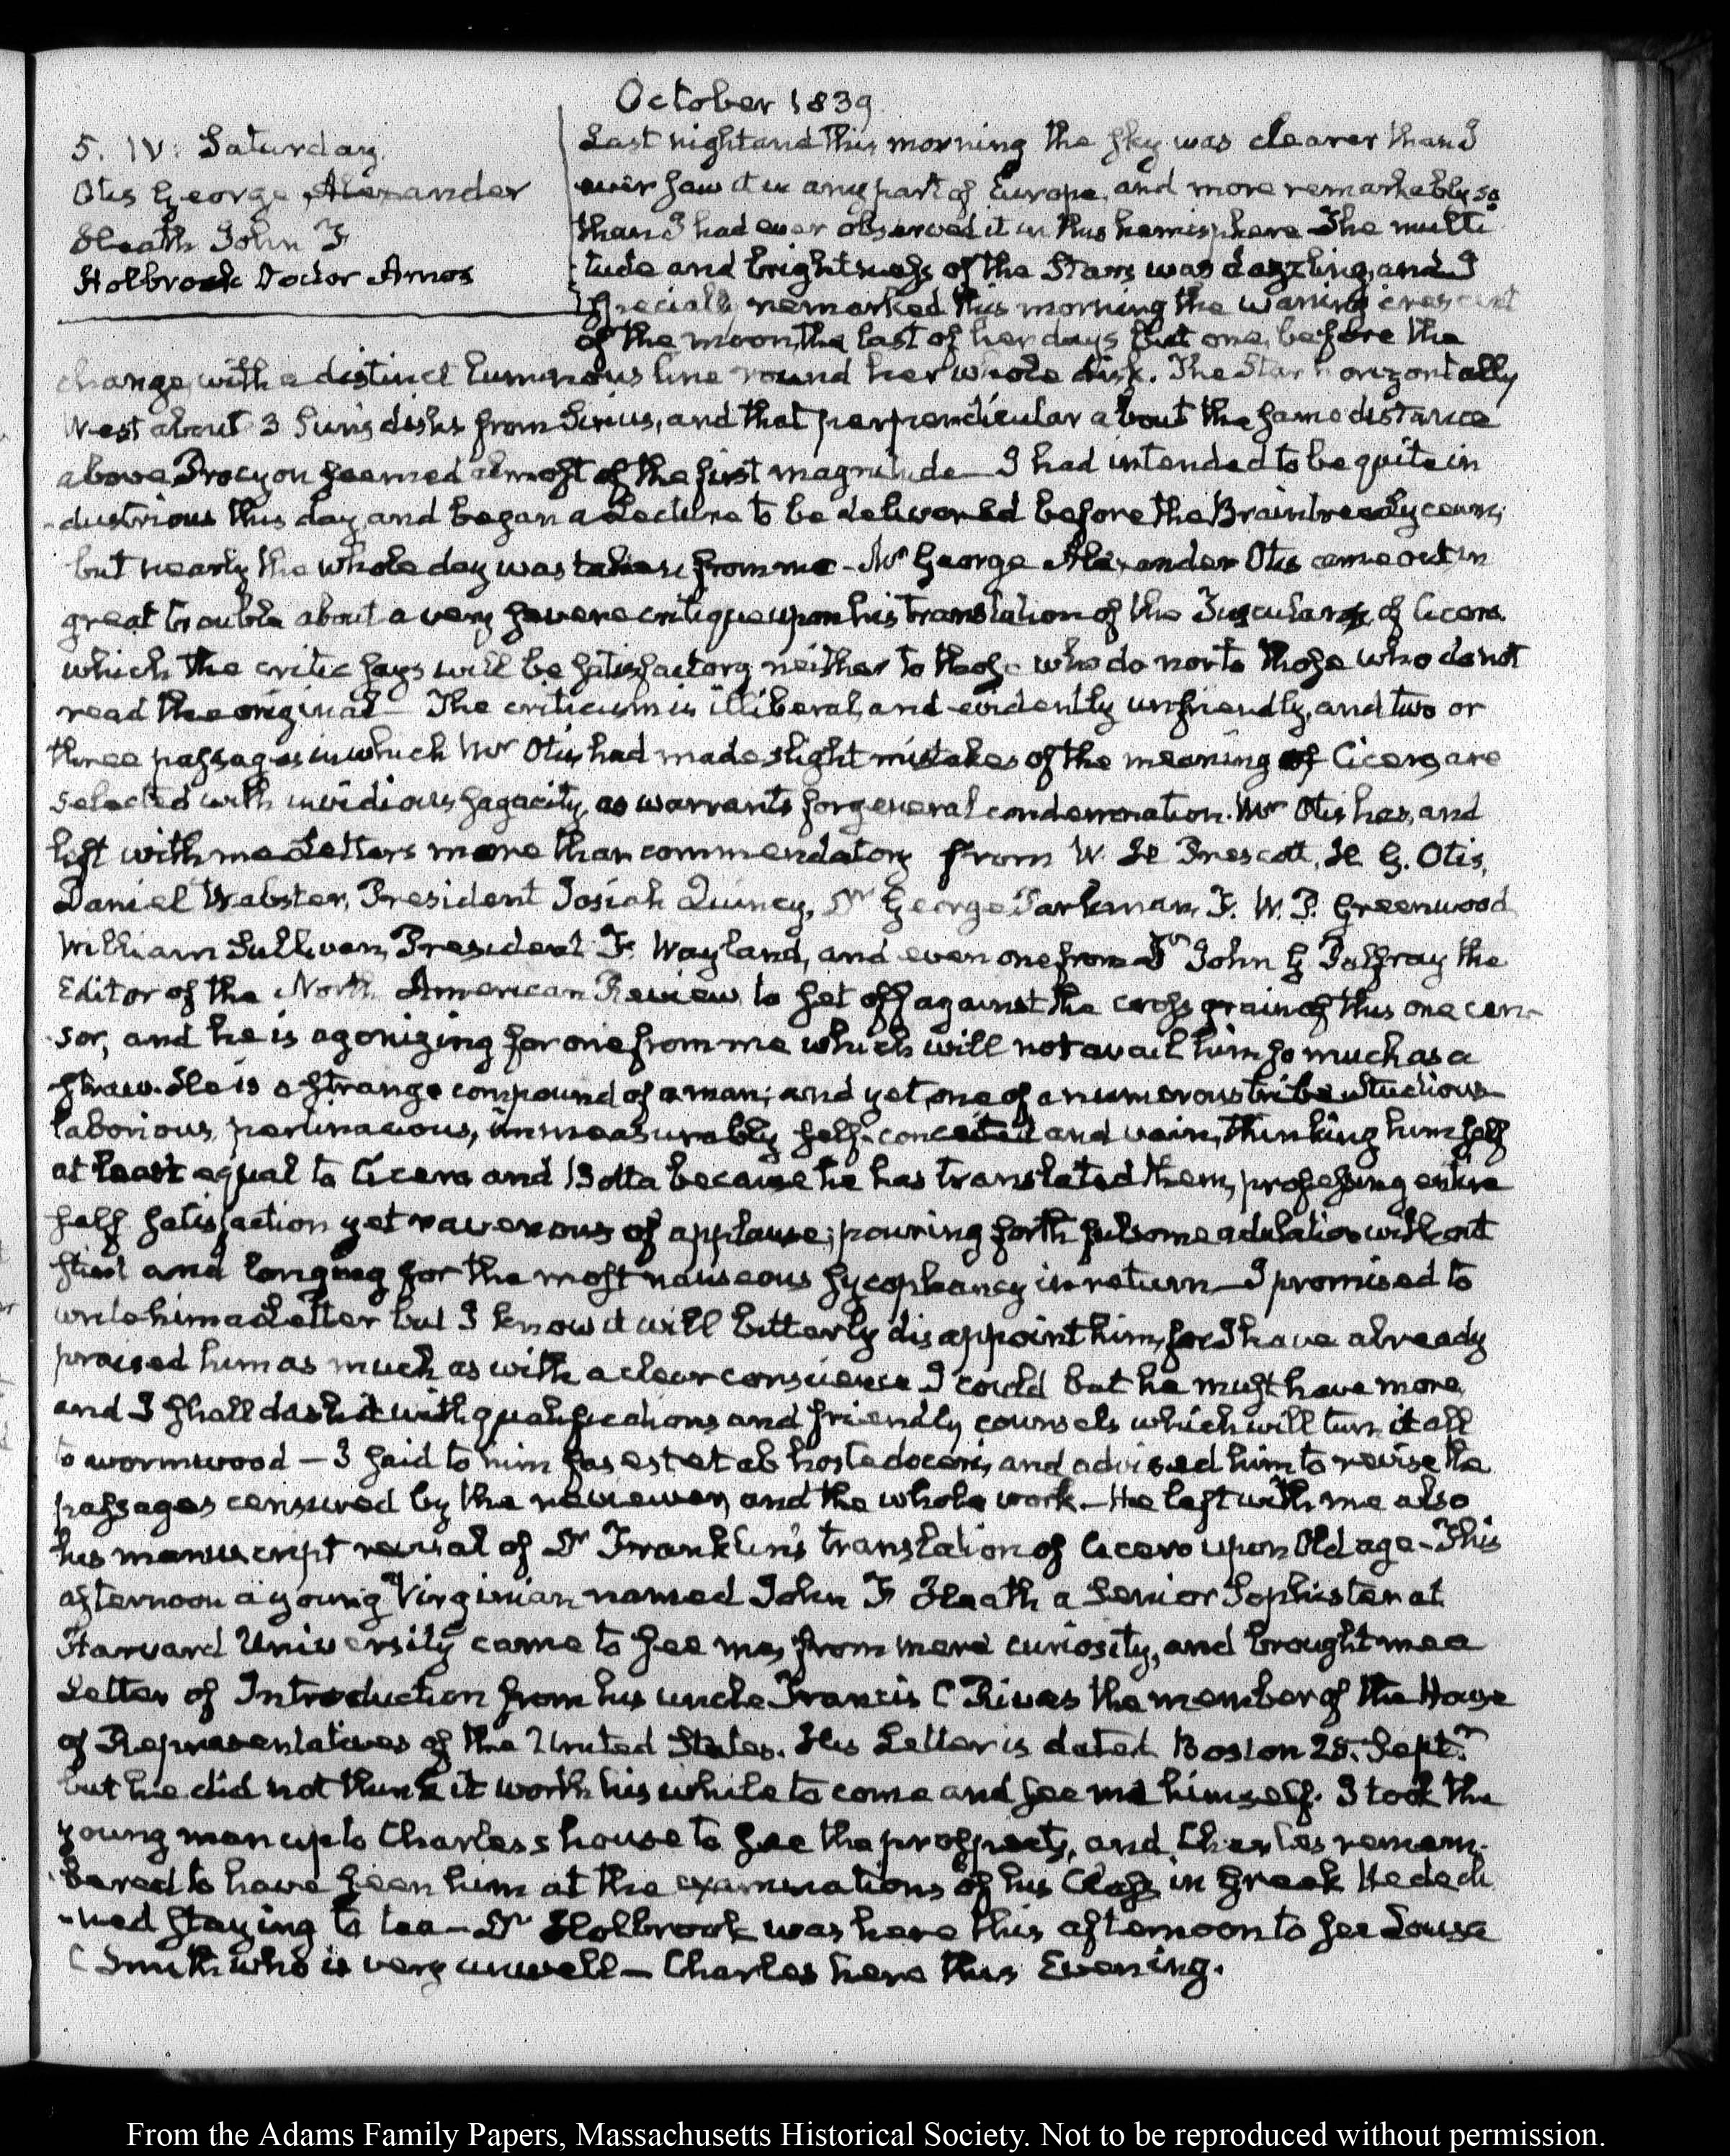 October 1839
5. IV: Saturday.
Otis George Alexander
Heath John F
Holbrook Doctor Amos
Last night and this morning the sky was clearer than I
ever saw it in any part of Europe, and more remarkably so
than I had ever observed it in this hemisphere. The multi
tude and brightness of the Stars was dazzling, and I
specially remarked this morning the waning crescent
of the moon, the last of her days but one, before the
change, with a distinct luminous line round her whole disk. The Star horizontally
West about 3 Sun's disks from Sirius, and that perpendicular about the same distance
above Procyon seemed almost of the first magnitude— I had intended to be quite in
-dustrious this day and began a Lecture to be delivered before the Braintree Lyceum;
but nearly the whole day was taken from me - Mr George Alexander Otis came out in
great trouble about a very severe critique upon his translation of the Tusculans of Cicero.
which the critic says will be satisfactory neither to those who do nor to those who do not
read the original— The criticism is illiberal, and evidently unfriendly, and two or
three passages in which Mr Otis had made slight mistakes of the meaning of Cicero, are
selected with invidious sagacity, as warrants for general condemnation. Mr Otis has, and
left with me Letters more than commendatory from W. H Prescott, H. G. Otis,
Daniel Webster, President Josiah Quincy, Dr George Parkman, F. W. P. Greenwood
William Sullivan, President F. Wayland, and even one from Dr John G Palfrey the
Editor of the North American Review to set off against the cross grain of this one cen-
sor, and he is agonizing for one from me which will not avail him so much as a
straw. He is a strange compound of a man; and yet one of a numerous tribe studious
laborious, pertinacious, immeasurably self-conceited and vain, thinking himself
at least equal to Cicero and Botta because he has translated them, professing entire
self satisfaction yet ravenous of applause; pouring forth fulsome adulation without
stint and longing for the most nauseous sycophancy in return— I promised to
write him a Letter but I know it will bitterly disappoint him, for I have already
praised him as much as with a clear conscience I could but he must have more,
and I shall dash it with qualifications and friendly counsels which will turn it all
to wormwood — I said to him fas est et ab hoste doceri, and advised him to revise the
passages censured by the reviewer, and the whole work.— He left with me also
his manuscript revisal of Dr Franklin's translation of Cicero upon Old age - This
afternoon a young Virginian named John F Heath a Senior Sophister at
Harvard University came to see me, from mere curiosity, and brought me a
Letter of Introduction from his uncle Francis E Rives the member of the House
of Representatives of the United States. His Letter is dated Boston 25. Septr
but he did not think it worth his while to come and see me himself. I took the
young man up to Charles's house to see the prospect, and Charles remem-
bered to have seen him at the examinations of his Class in Greek He decli
-ned staying to tea— Dr Holbrook was here this afternoon to see Louisa
C Smith who is very unwell— Charles here this Evening.
From the Adams Family Papers, Massachusetts Historical Society. Not to be reproduced without permission.